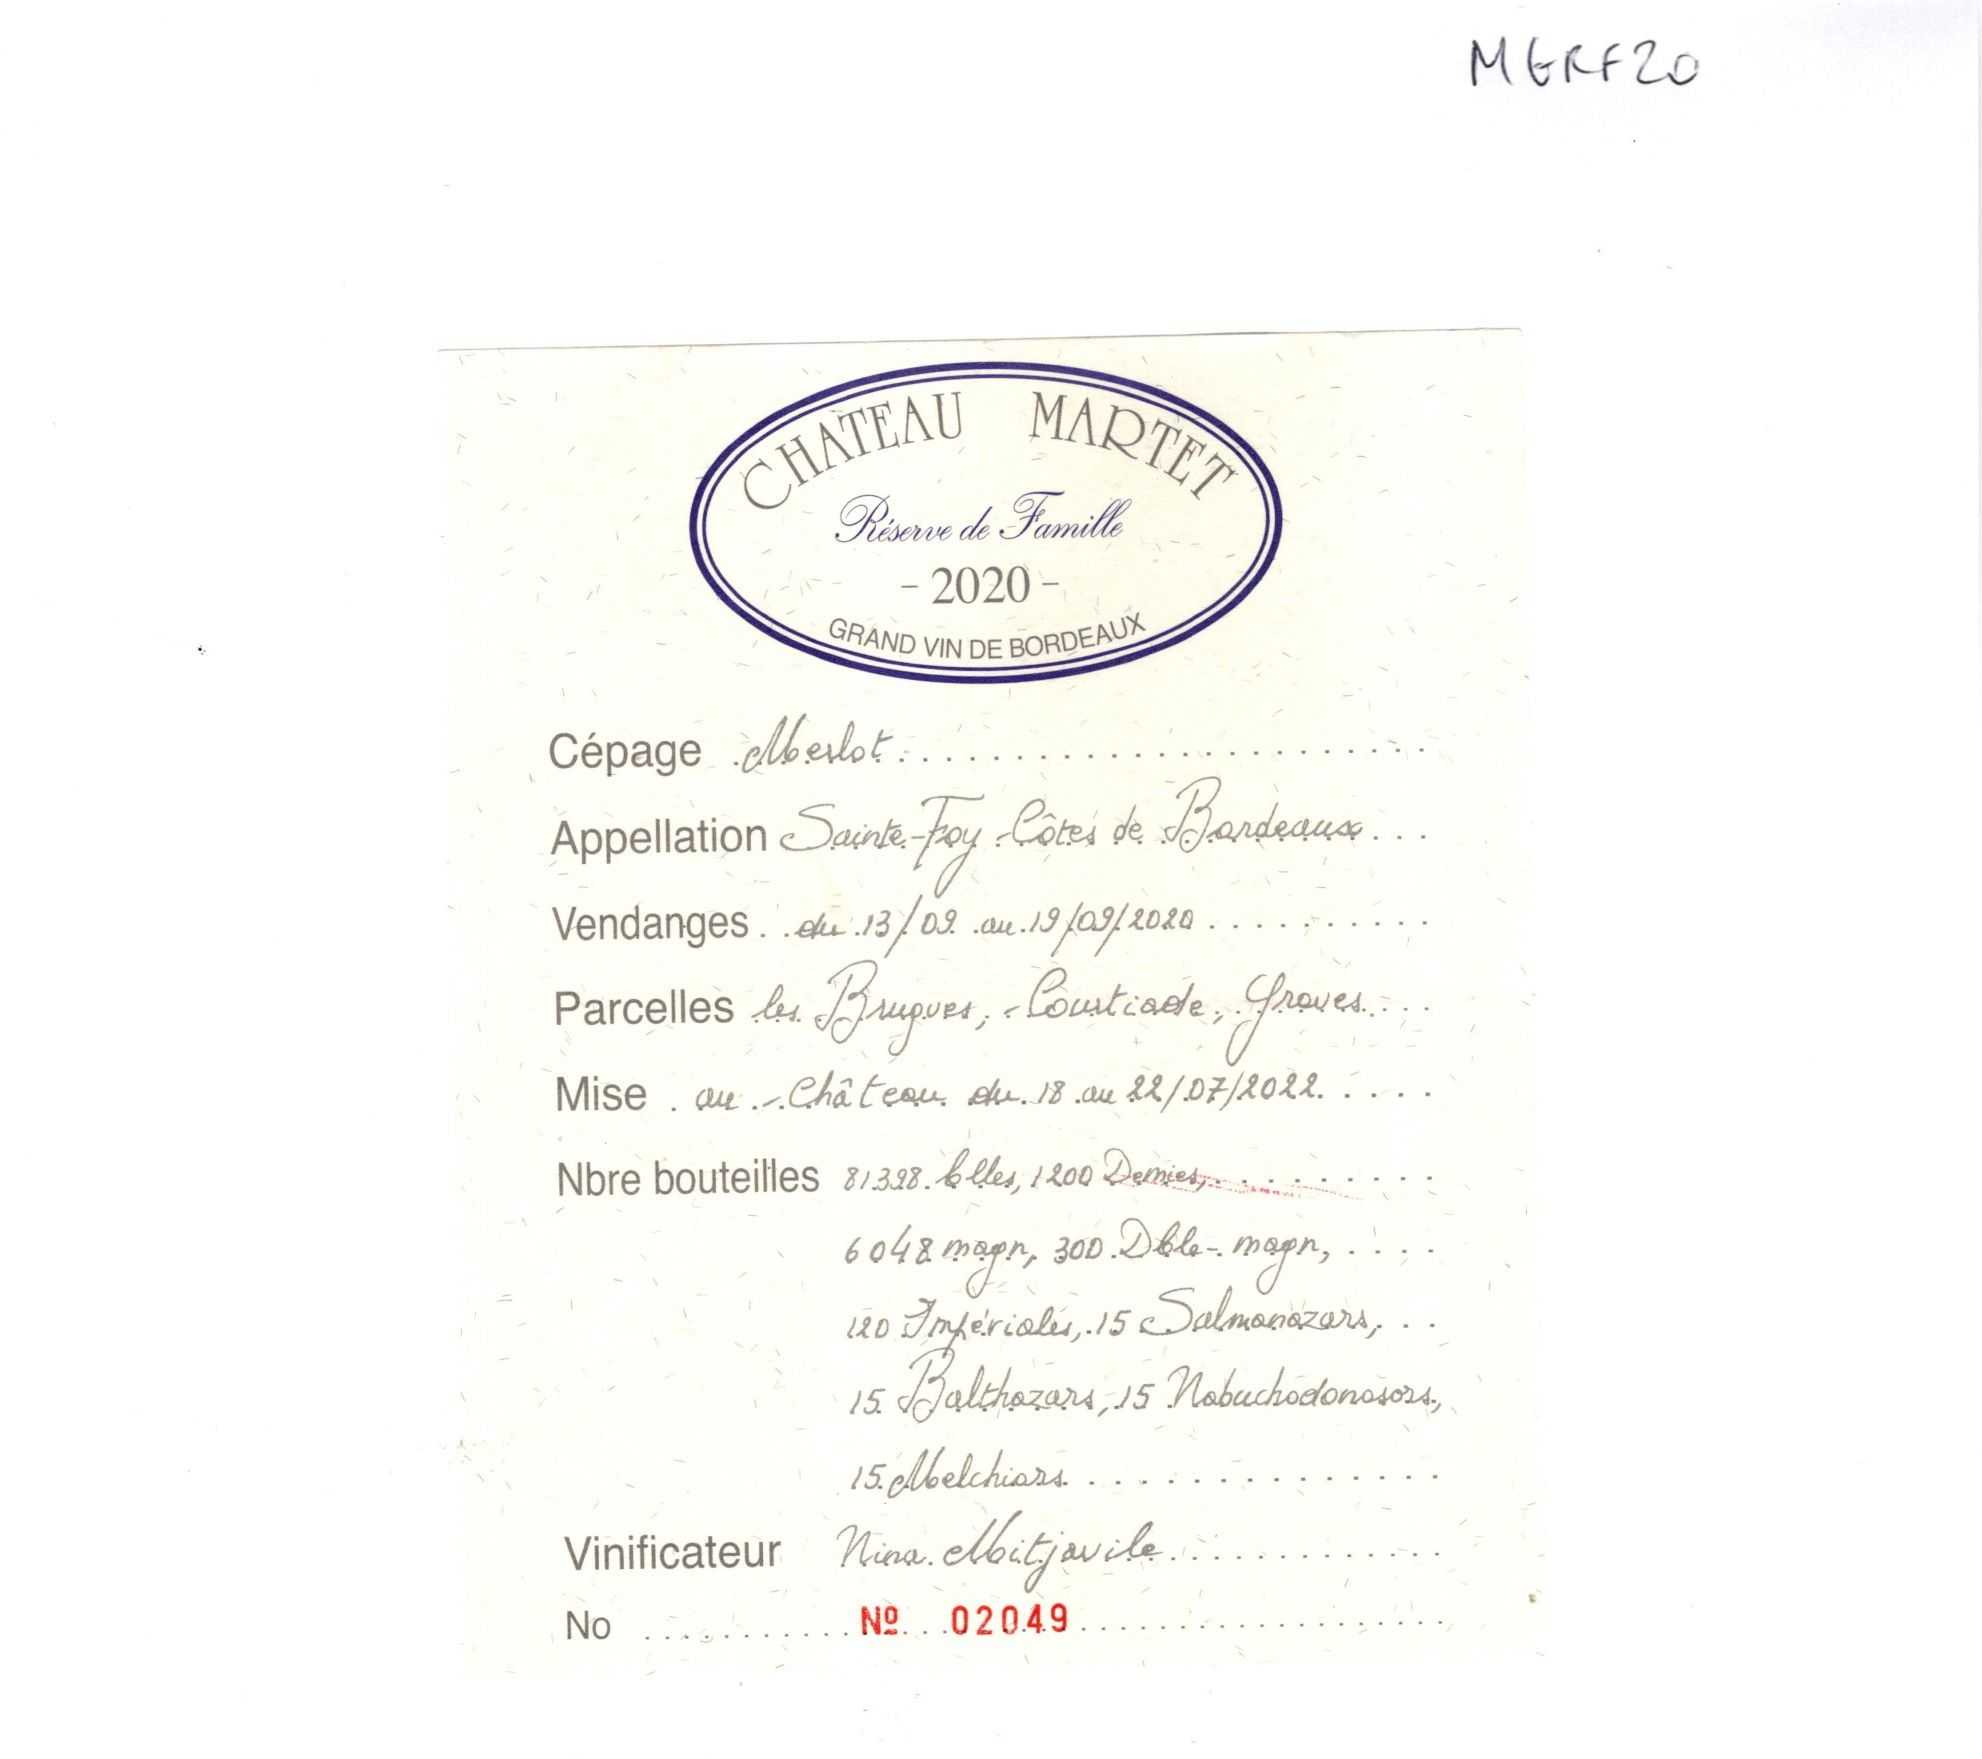 MGRF20
CHATEAU MARTET
Réserve de Famille
- 2020 -
GRAND VIN DE BORDEAUX
Cépage Merlot
Appellation Sainte-Foy Côtes de Bordeaux
Vendanges du 13/09 au 19/09/2020
Parcelles les Brugues, Courtiade, Graves
Mise au Château du 18 au 22/07/2022
Nbre bouteilles 81398 blles, 1200 Demies,
6048 magn, 300 Dble-magn,
120 Impériales, 15 Salmanazars,
15 Balthazars, 15 Nabuchodonosors,
15 Melchiors
Vinificateur Nina Mitjavile
No Nº 02049